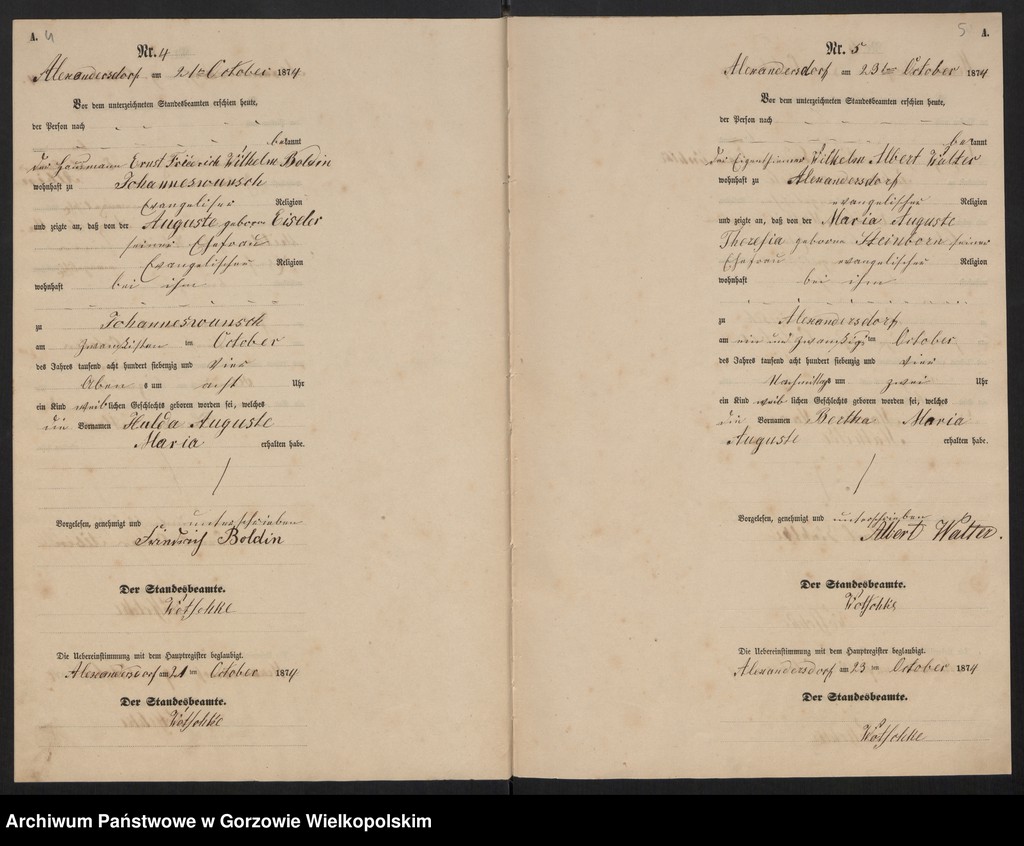 A. 4
Nr. 4
Alexandersdorf am 21ten October 1874
Vor dem unterzeichneten Standesbeamten erschien heute,
der Person nach
bekannt
der Hausmann Ernst Friederich Wilhelm Boldin
wohnhaft zu Johanneswunsch
Evangelischer Religion
und zeigte an, daß von der Auguste geborne Eiseler
seiner Ehefrau
Evangelischer Religion
wohnhaft bei ihm
zu Johanneswunsch
am zwanzigsten ten October
des Jahres tausend acht hundert siebenzig und vier
Abends um acht Uhr
ein Kind weiblichen Geschlechts geboren worden sei, welches
die Vornamen Hulda Auguste
Maria erhalten habe.
Vorgelesen, genehmigt und unterschrieben
Friedrich Boldin
Der Standesbeamte.
Wotschke
Die Uebereinstimmung mit dem Hauptregister beglaubigt.
Alexandersdorf am 21 ten October 1874
Der Standesbeamte.
Wotschke
5 A.
Nr. 5
Alexandersdorf am 23ten October 1874
Vor dem unterzeichneten Standesbeamten erschien heute,
der Person nach
bekannt
der Eigenthümer Wilhelm Albert Walter
wohnhaft zu Alexandersdorf
evangelischer Religion
und zeigte an, daß von der Maria Auguste
Theresia geborne Steinborn seiner
Ehefrau evangelischer Religion
wohnhaft bei ihm
zu Alexandersdorf
am ein und zwanzigsten October
des Jahres tausend acht hundert siebenzig und vier
Nachmittags um zwei Uhr
ein Kind weiblichen Geschlechts geboren worden sei, welches
die Vornamen Bertha Maria
Auguste erhalten habe.
Vorgelesen, genehmigt und unterschrieben
Albert Walter.
Der Standesbeamte.
Wotschke
Die Uebereinstimmung mit dem Hauptregister beglaubigt.
Alexandersdorf am 23 ten October 1874
Der Standesbeamte.
Wotschke
Archiwum Państwowe w Gorzowie Wielkopolskim